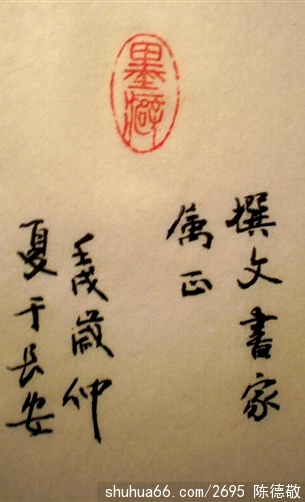 墨癖
撰文書家
属正
壬戌歲仲
夏于长安
shuhua66.com/2695 陈德敬